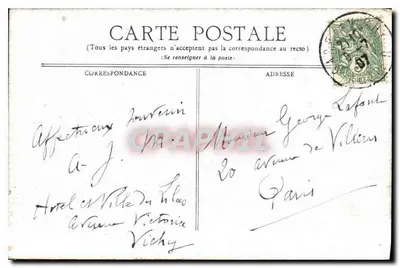 CARTE POSTALE
(Tous les pays étrangers n'acceptent pas la correspondance au recto)
(Se renseigner à la poste)
CORRESPONDANCE
ADRESSE
Affectueux souvenir
A. J. M.
Hotel et Villa des Lilas
Avenue Victoria
Vichy
Monsieur George Lafont
20 avenue de Villiers
Paris
07